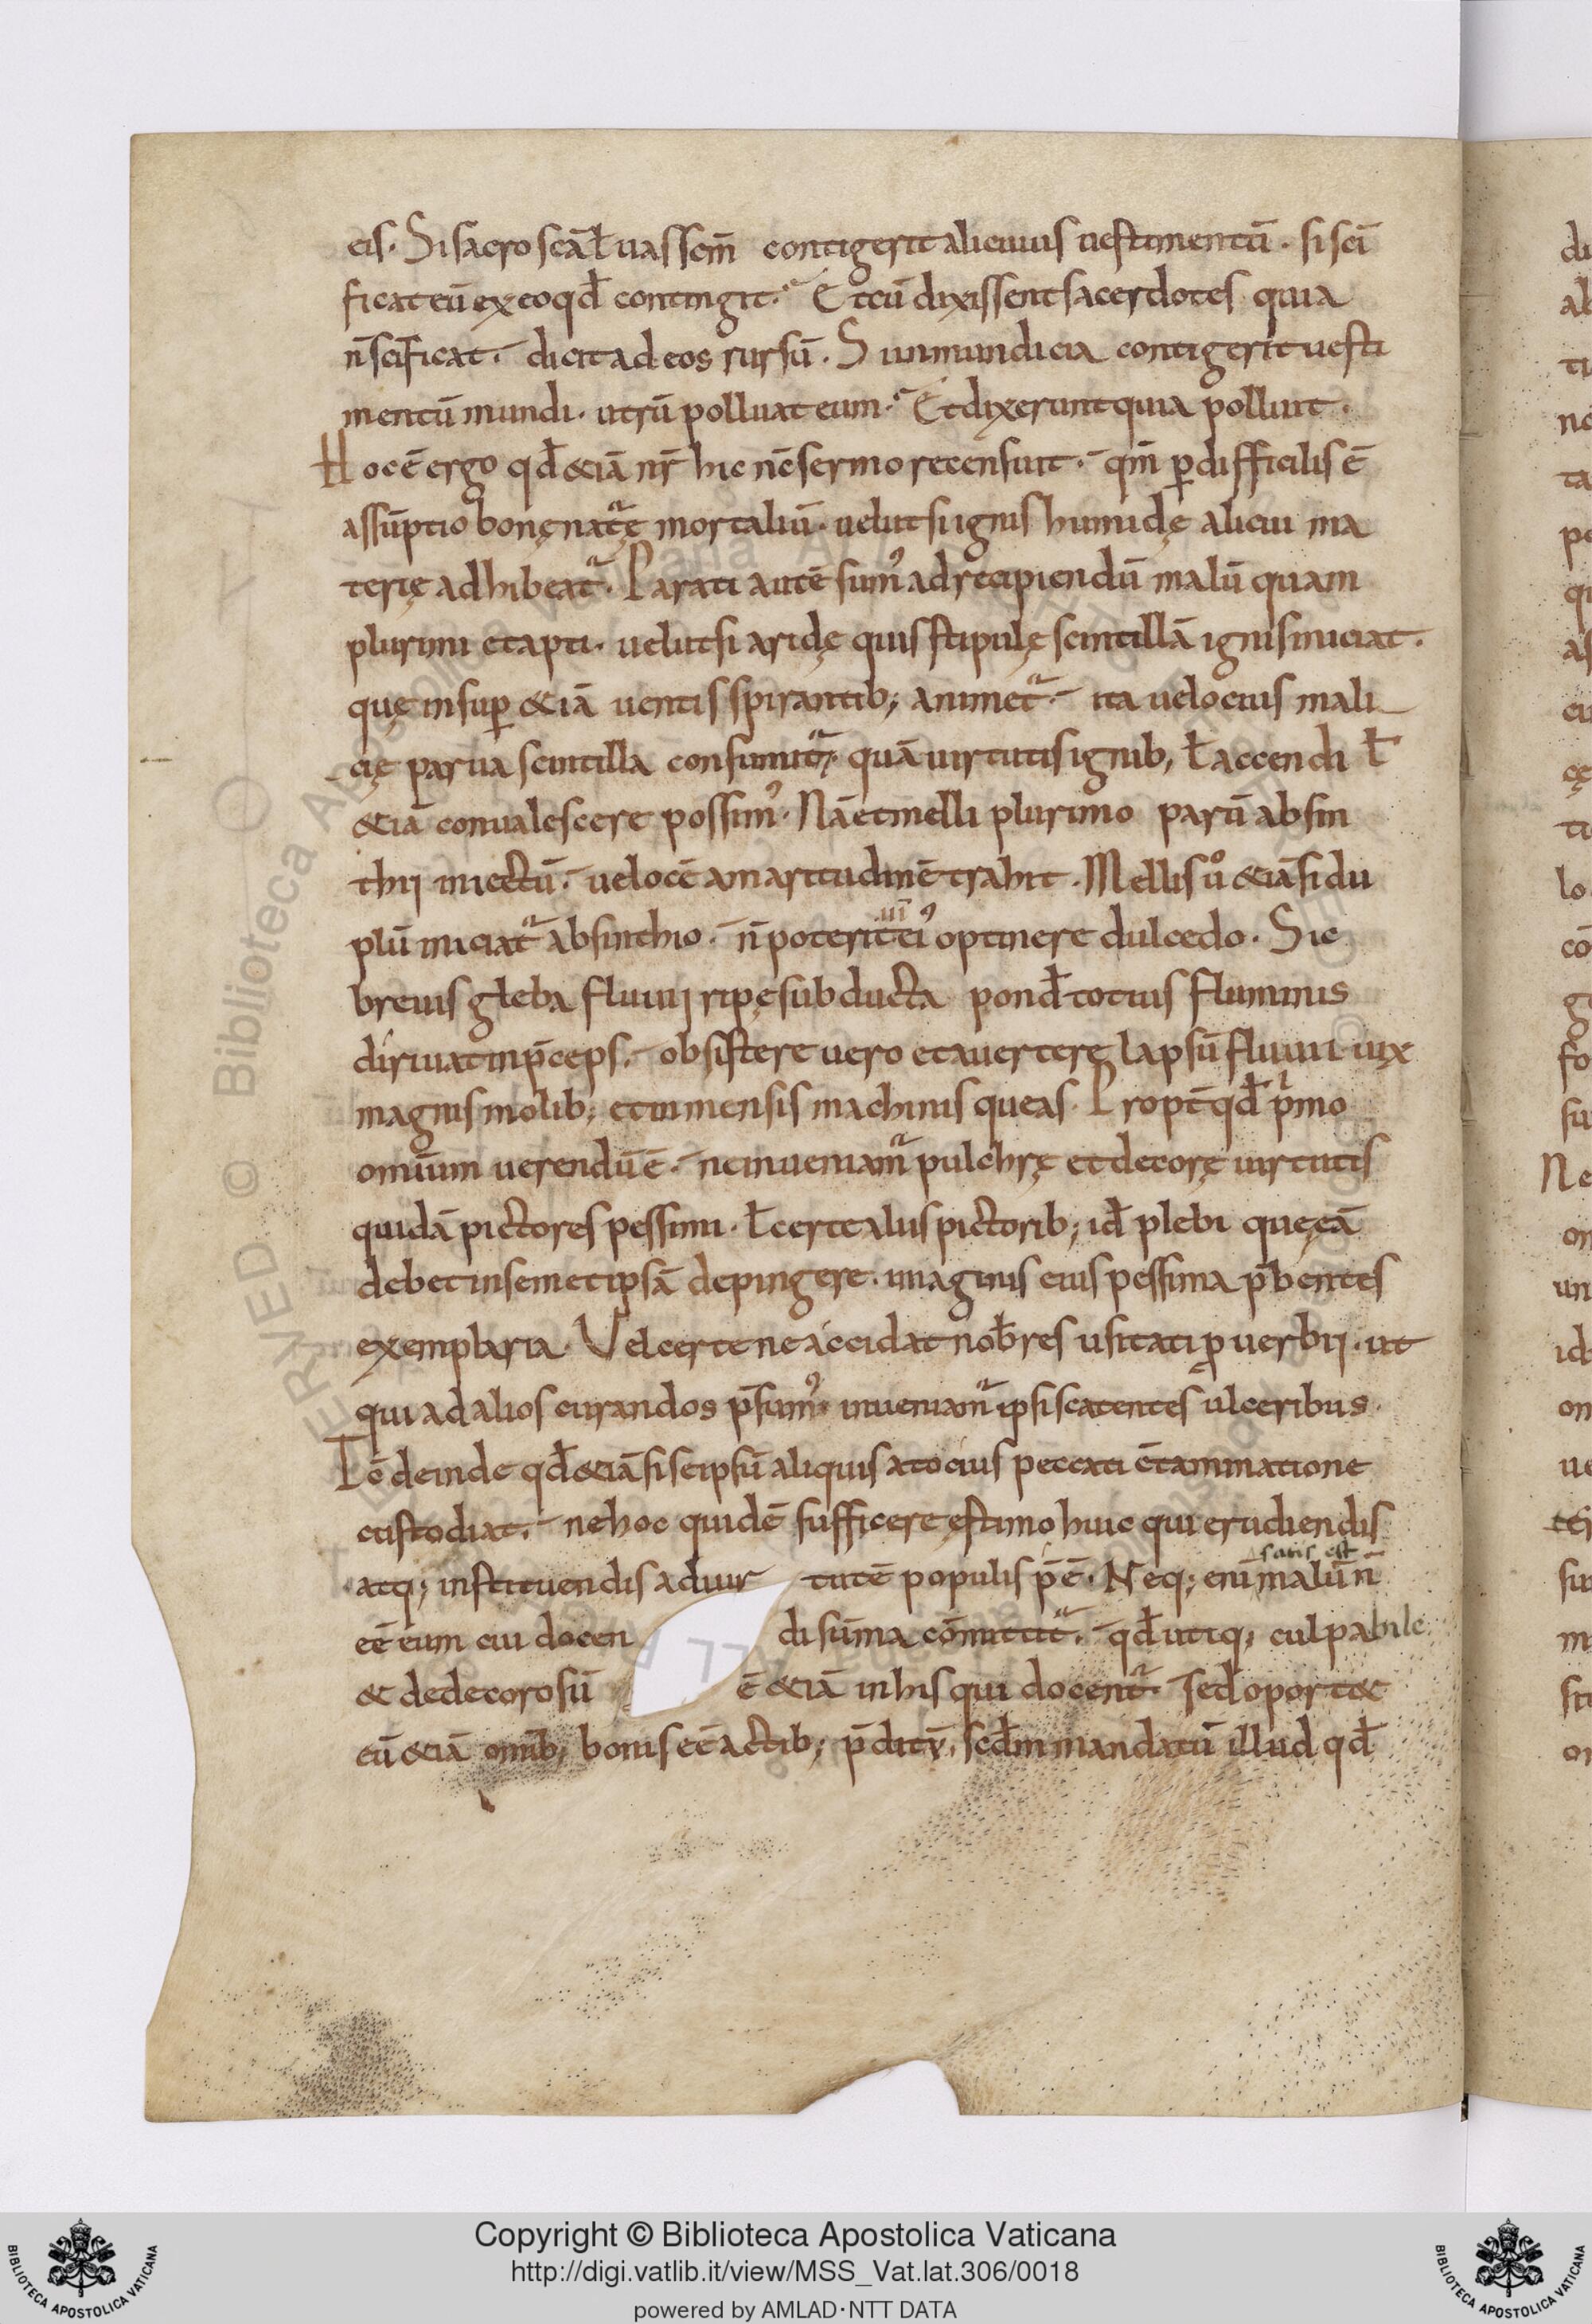 eis. Si sacro scā ł uas scm̄ contigerit alicuius uestimentū. si sci
ficat eū ex eo qd̄ contingit. Et cū dixissent sacerdotes quia
n̄ scificat. dicit ad eos rursū. Si inmundicia contigerit uesti
mentū mundi. utrū polluat eum. Et dixerunt quia polluit.
Hoc ē ergo qd̄ &iā nr̄ hic nc̄ sermo recensuit. qm̄ ꝑdifficilis ē
assūptio bonę natᵃę mortaliū. uelut si ignis humidę alicui ma
terię adhibeatᵃ. Parati autē sumꝰ ad recipiendū malū quam
plurimi et apti. uelut si aridę quis stipulę scintillā ignis iniciat.
quę insuꝑ &iā uentis spirantib; animetᵃ. ita uelocius mali
cię parua scintilla consumitᵃ. quā uirtutis ignib; ł accendi ł
&iā conualescere possimꝰ. Nā et melli plurimo parū absin
thij iniectū. uelocē amaritudinē trahit. Mellis uº &iā si du
plū iniciatᵃ absinthio. n̄ poterit eiꝰ optinere dulcedo. Sic
breuis gleba fluuij ripę subducta pond̄ totius fluminis
diriuat in p̄ceps. obsistere uero et auertere lapsū fluuii uix
magnis molib; et inmensis machinis queas. Propt̄ qd̄ pⁱmo
omium uerendū ē. ne inueniamᵃ pulchrę et decorę uirtutis
quidā pictores pessimi. ł certe aliis pictorib; id̄ plebi quę eā
debet in semetipsā depingere. imaginis eius pessima p̄bentes
exemplaria. Vel certe ne accidat nob̄ res usitati ꝓuerbij. ut
qui ad alios curandos p̄sumꝰ. inueniamᵃ ipsi scatentes ulceribus.
Iō deinde qd̄ &iā si seipsū aliquis a tocius peccati c̄taminatione
custodiat. ne hoc quidē sufficere ęstimo huic qui erudiendis
atq; instituendis ad uir tutē populis p̄ē. Neq; enī malū n̄
satis est
eē eum cui docen di sūma cōmittitᵃ. qd̄ utiq; culpabile
& dedecorosū ē &iā in his qui docentᵃ. sed oport&
eū &iā om̄ib; bonis eē actib; p̄ditū. scd̄m mandatū illud qd̄
Copyright © Biblioteca Apostolica Vaticana
http://digi.vatlib.it/view/MSS_Vat.lat.306/0018
powered by AMLAD·NTT DATA
BIBLIOTECA APOSTOLICA VATICANA
BIBLIOTECA APOSTOLICA VATICANA